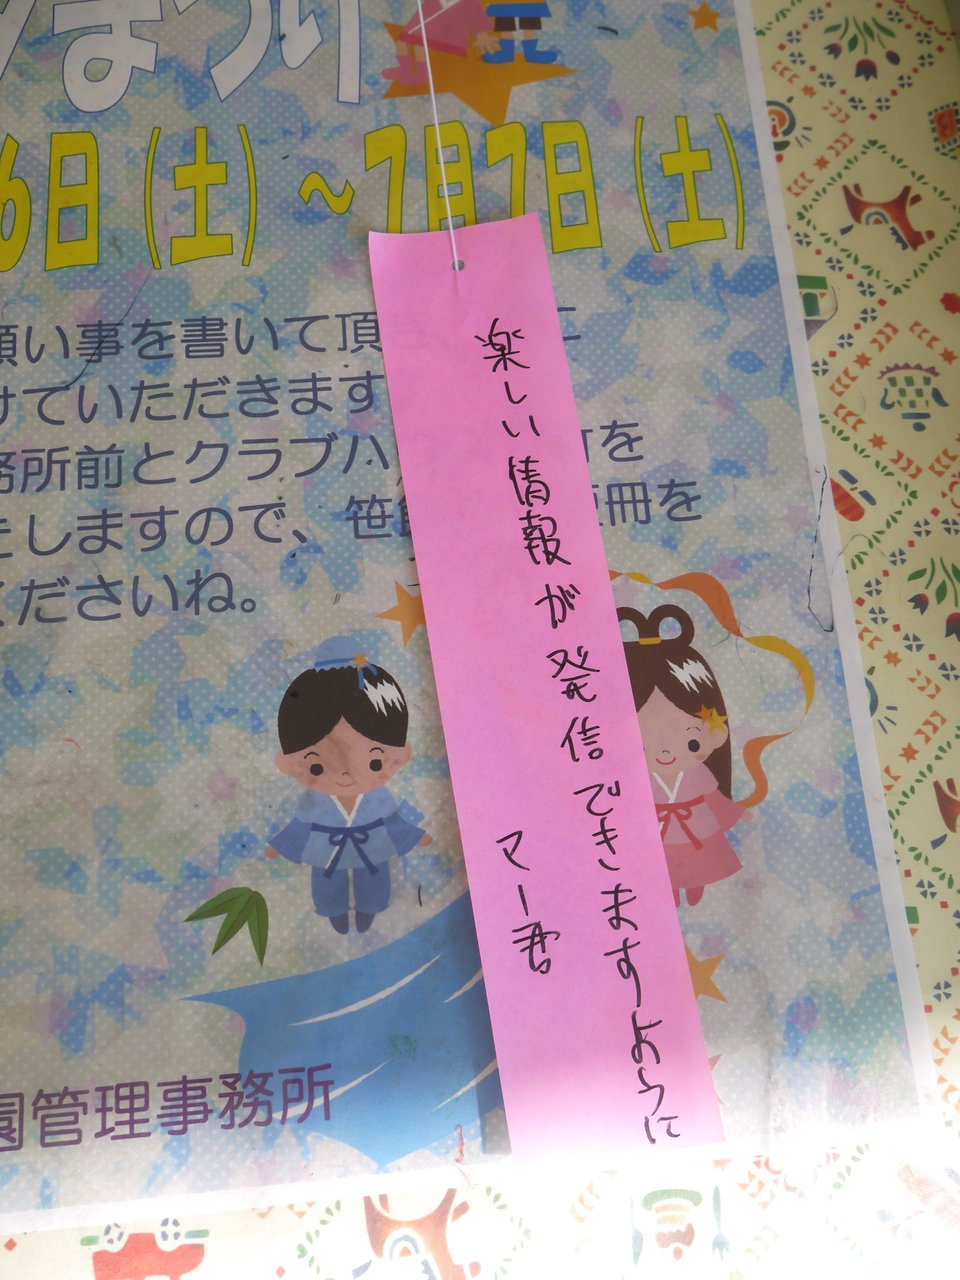 まつり
6日(土)~7月7日(土)
願い事を書いて頂
けていただきます
務所前とクラブハ
をしますので、笹
短冊を
くださいね。
園管理事務所
楽しい情報が発信できますように
マー君